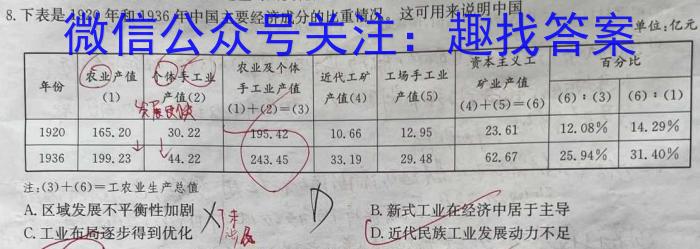 8. 下表是1920年和1936年中国主要经济成分的比重情况。这可用来说明中国
微信公众号关注：趣找答案
单位:亿元
年份 农业产值(1) 个体手工业产值(2) 农业及个体手工业产值(1)+(2)=(3) 近代工矿产值(4) 工场手工业产值(5) 资本主义工矿业产值(4)+(5)=(6) 百分比
(6):(3) (6):(1)
1920 165.20 30.22 195.42 10.66 12.95 23.61 12.08% 14.29%
1936 199.23 44.22 243.45 33.19 29.48 62.67 25.94% 31.40%
注:(3)+(6)=工农业生产总值
A. 区域发展不平衡性加剧 B. 新式工业在经济中居于主导
C. 工业布局逐步得到优化 D. 近代民族工业发展动力不足
D